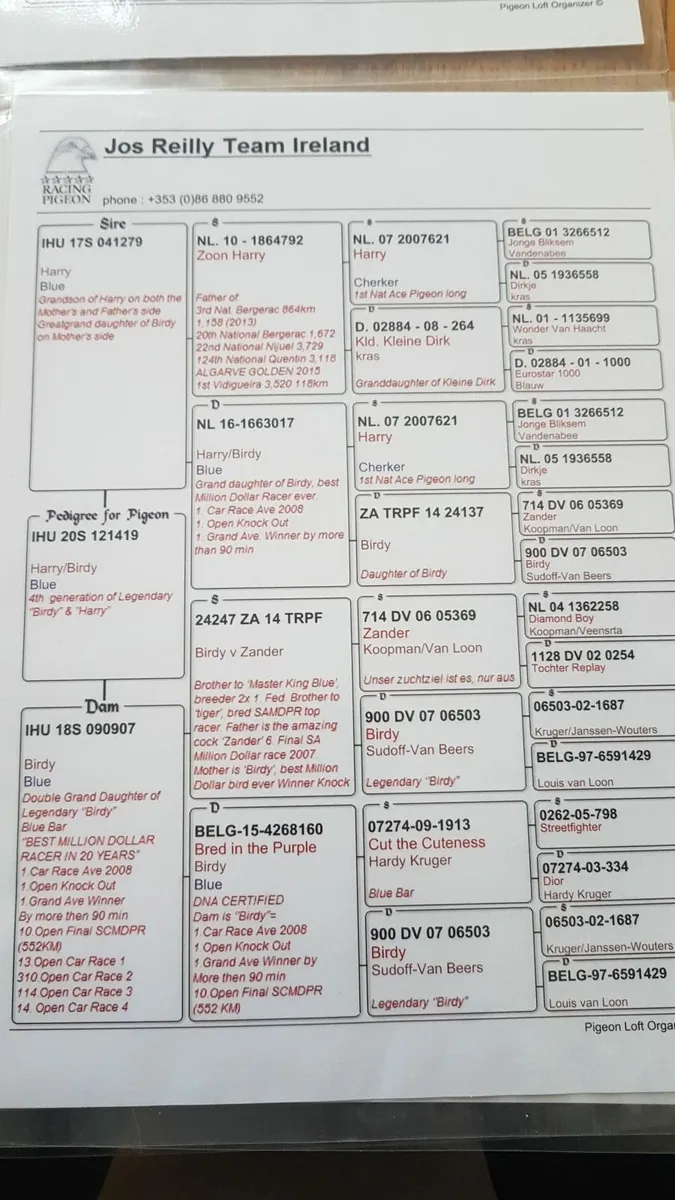 Pigeon Loft Organizer ©
Jos Reilly Team Ireland
RACING
PIGEON
phone : +353 (0)86 880 9552
Sire
IHU 17S 041279
Harry
Blue
Grandson of Harry on both the
Mother's and Father's side
Greatgrand daughter of Birdy
on Mother's side
Pedigree for Pigeon
IHU 20S 121419
Harry/Birdy
Blue
4th generation of Legendary
"Birdy" & "Harry"
Dam
IHU 18S 090907
Birdy
Blue
Double Grand Daughter of
Legendary "Birdy"
Blue Bar
"BEST MILLION DOLLAR
RACER IN 20 YEARS"
1.Car Race Ave 2008
1.Open Knock Out
1 Grand Ave Winner
By more then 90 min
10.Open Final SCMDPR
(552KM)
13.Open Car Race 1
310.Open Car Race 2
114.Open Car Race 3
14. Open Car Race 4
S
NL. 10 - 1864792
Zoon Harry
Father of
3rd Nat. Bergerac 864km
1,158 (2013)
20th National Bergerac 1,672
22nd National Nijuel 3,729
124th National Quentin 3,118
ALGARVE GOLDEN 2015
1st Vidigueira 3,520 118km
D
NL 16-1663017
Harry/Birdy
Blue
Grand daughter of Birdy, best
Million Dollar Racer ever.
1. Car Race Ave 2008
1. Open Knock Out
1. Grand Ave. Winner by more
than 90 min
S
24247 ZA 14 TRPF
Birdy v Zander
Brother to 'Master King Blue',
breeder 2x 1. Fed. Brother to
'tiger', bred SAMDPR top
racer. Father is the amazing
cock 'Zander' 6. Final SA
Million Dollar race 2007.
Mother is 'Birdy', best Million
Dollar bird ever Winner Knock
D
BELG-15-4268160
Bred in the Purple
Birdy
Blue
DNA CERTIFIED
Dam is "Birdy"=
1.Car Race Ave 2008
1.Open Knock Out
1.Grand Ave Winner by
More then 90 min
10.Open Final SCMDPR
(552 KM)
S
NL. 07 2007621
Harry
Cherker
1st Nat Ace Pigeon long
D
D. 02884 - 08 - 264
Kld. Kleine Dirk
kras
Granddaughter of Kleine Dirk
S
NL. 07 2007621
Harry
Cherker
1st Nat Ace Pigeon long
D
ZA TRPF 14 24137
Birdy
Daughter of Birdy
S
714 DV 06 05369
Zander
Koopman/Van Loon
Unser zuchtziel ist es, nur aus
D
900 DV 07 06503
Birdy
Sudoff-Van Beers
Legendary "Birdy"
S
07274-09-1913
Cut the Cuteness
Hardy Kruger
Blue Bar
D
900 DV 07 06503
Birdy
Sudoff-Van Beers
Legendary "Birdy"
S
BELG 01 3266512
Jonge Bliksem
Vandenabee
D
NL. 05 1936558
Dirkje
kras
S
NL. 01 - 1135699
Wonder Van Haacht
kras
D
D. 02884 - 01 - 1000
Eurostar 1000
Blauw
S
BELG 01 3266512
Jonge Bliksem
Vandenabee
D
NL. 05 1936558
Dirkje
kras
S
714 DV 06 05369
Zander
Koopman/Van Loon
D
900 DV 07 06503
Birdy
Sudoff-Van Beers
S
NL 04 1362258
Diamond Boy
Koopman/Veensrta
D
1128 DV 02 0254
Tochter Replay
S
06503-02-1687
Kruger/Janssen-Wouters
D
BELG-97-6591429
Louis van Loon
S
0262-05-798
Streetfighter
D
07274-03-334
Dior
Hardy Kruger
S
06503-02-1687
Kruger/Janssen-Wouters
D
BELG-97-6591429
Louis van Loon
Pigeon Loft Orga